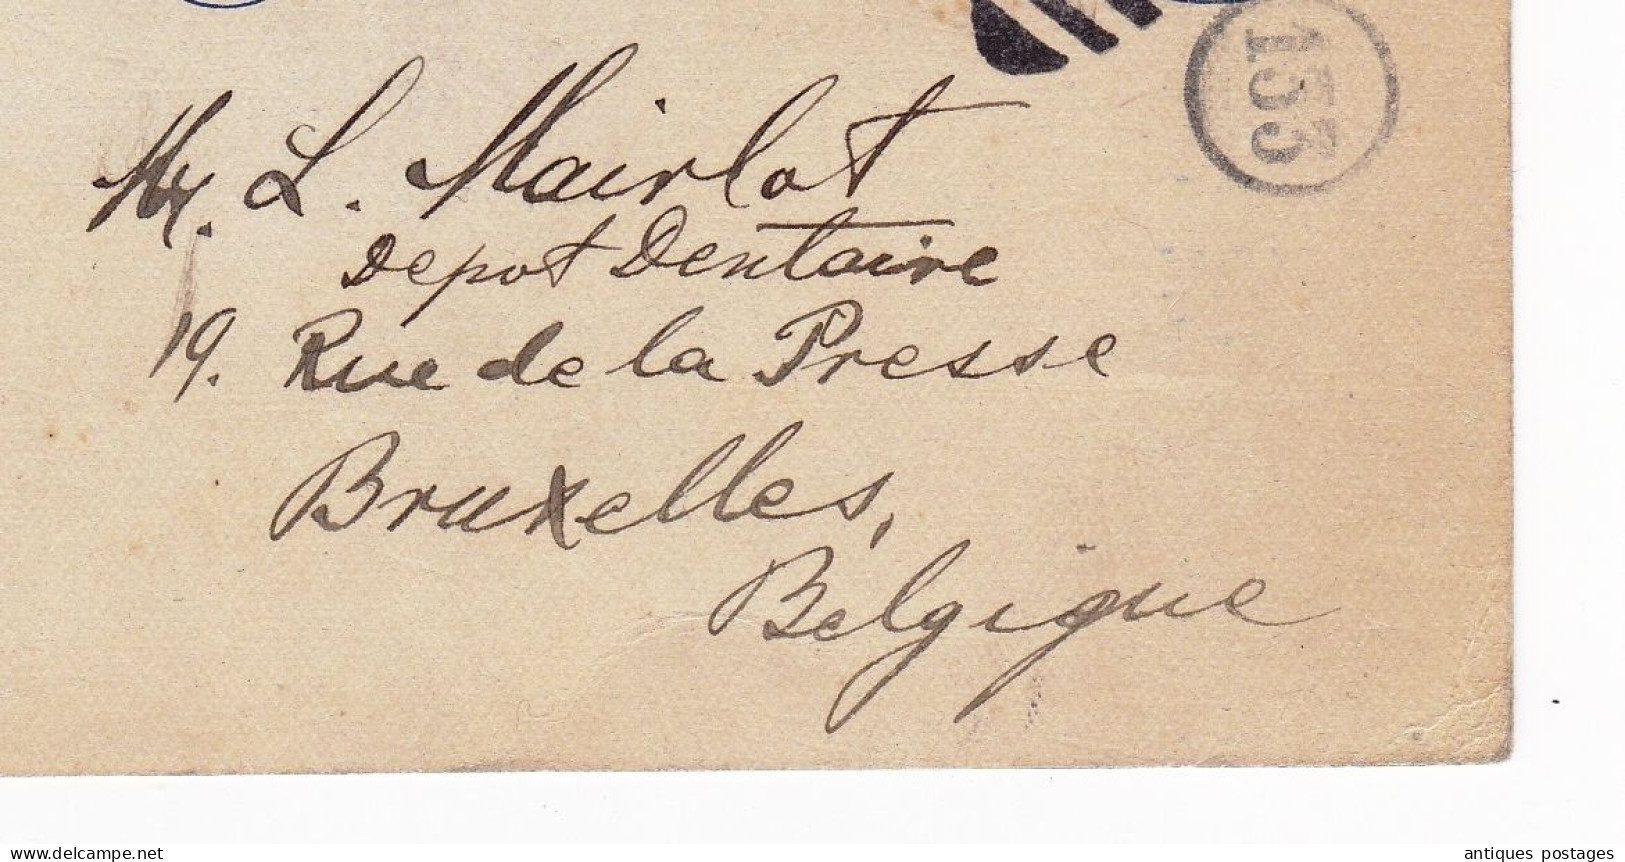 155
Mr. L. Mairlot
Depot Dentaire
19. Rue de la Presse
Bruxelles,
Belgique
delcampe.net
antiques postages